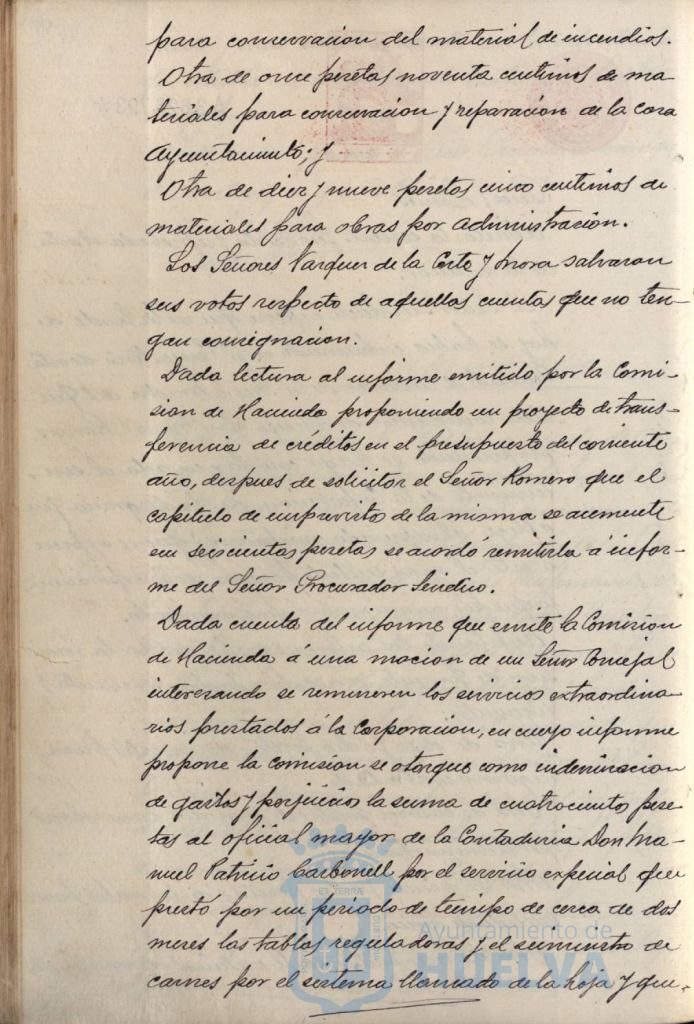 para conservacion del material de incendios.
Otra de once pesetas noventa centimos de ma-
teriales para conservacion y reparacion de la casa
Ayuntamiento; y
Otra de diez y nueve pesetas cinco centimos de
materiales para obras por administracion.
Los Señores Vazquez de la Corte y Mora salvaron
sus votos respecto de aquellas cuentas que no ten-
gan consignacion.
Dada lectura al informe emitido por la Comi-
sion de Hacienda proponiendo un proyecto de trans-
ferencia de créditos en el presupuesto del corriente
año, despues de solicitar el Señor Romero que el
capitulo de imprevistos de la misma se aumente
en seiscientas pesetas se acordó remitirla á infor-
me del Señor Procurador Sindico.
Dada cuenta del informe que emite la Comision
de Hacienda á una mocion de un Señor Concejal
interesando se remuneren los servicios extraordina-
rios prestados á la Corporacion, en cuyo informe
propone la comision se otorgue como indemnizacion
de gastos y perjuicios la suma de cuatrocientas pese-
tas al oficial mayor de la Contaduria Don Ma-
nuel Patricio Carbonell por el servicio especial que
prestó por un periodo de tiempo de cerca de dos
meses las tablas reguladoras y el suministro de
carnes por el sistema llamado de la hoja y que-
Ayuntamiento de
HUELVA